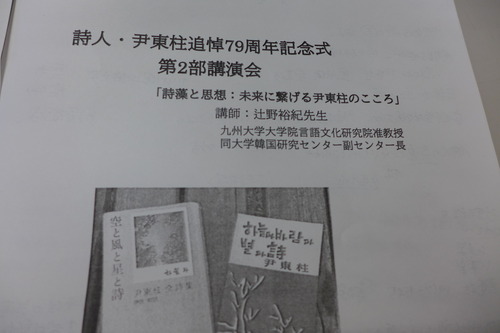 詩人・尹東柱追悼79周年記念式
第2部講演会
「詩藻と思想：未来に繋げる尹東柱のこころ」
講師：辻野裕紀先生
九州大学大学院言語文化研究院准教授
同大学韓国研究センター副センター長
空と風と星と詩
尹東柱 全詩集
하늘과바람과
별과詩
尹東柱